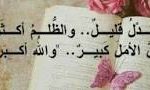 دلُ قليلٌ.. والظُّلمُ أكثَ
الأملَ كبيرٌ.. "والله أكبر